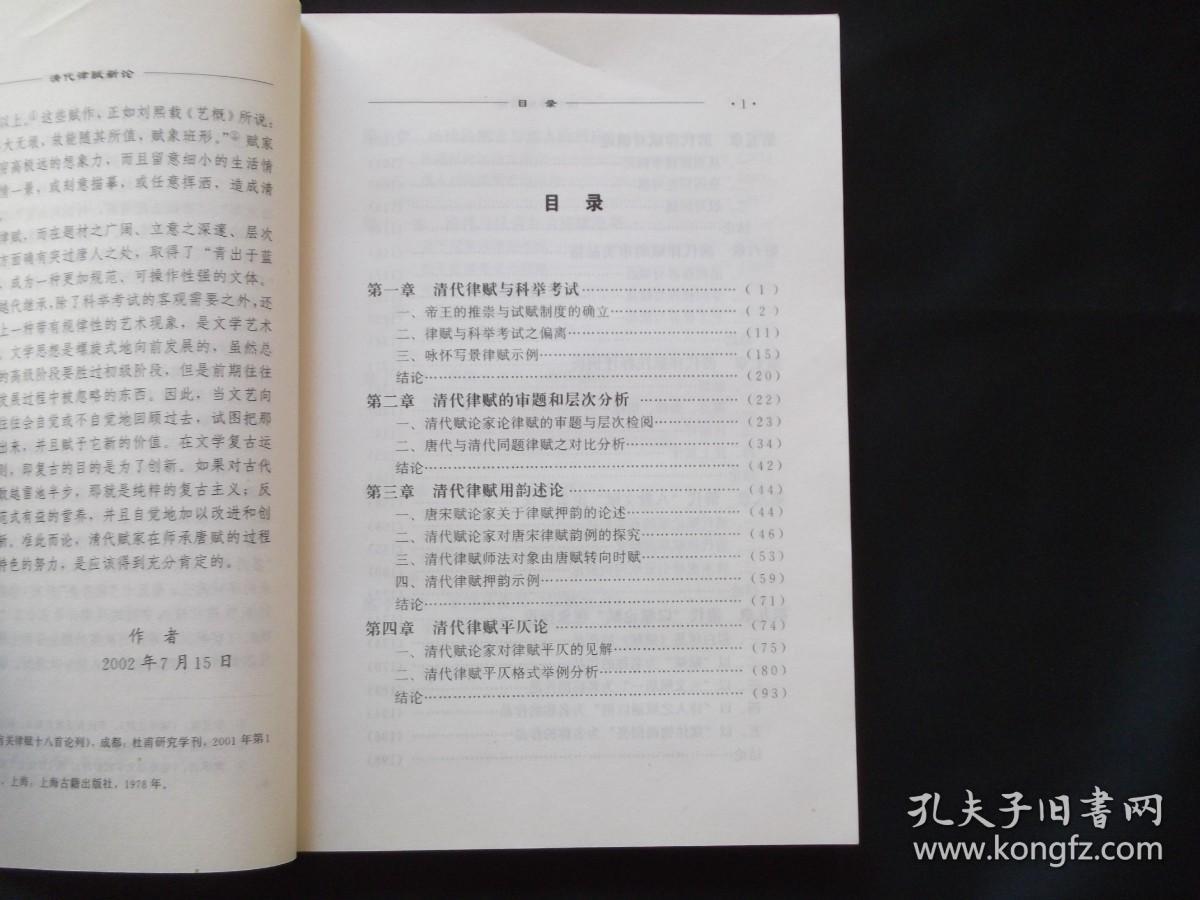 清代律赋新论
以上。①这些赋作，正如刘熙载《艺概》所说：
大无垠，故能随其所值，赋象班形。”④赋家
高极远的想象力，而且留意细小的生活情
情一景，或刻意描摹，或任意挥洒，造成清
律赋，而在题材之广阔、立意之深邃、层次
方面确有突过唐人之处，取得了“青出于蓝
、成为一种更加规范、可操作性强的文体。
越代继承，除了科举考试的客观需要之外，还
上一种带有规律性的艺术现象，是文学艺术
。文学思想是螺旋式地向前发展的，虽然总
的高级阶段要胜过初级阶段，但是前期往往
发展过程中被忽略的东西。因此，当文艺向
往往会自觉或不自觉地回顾过去，试图把那
出来，并且赋予它新的价值。在文学复古运
则，即复古的目的是为了创新。如果对古代
敢越雷池半步，那就是纯粹的复古主义；反
范式有益的营养，并且自觉地加以改进和创
新。准此而论，清代赋家在师承唐赋的过程
特色的努力，是应该得到充分肯定的。
作者
2002年7月15日
有关律赋十八首论列》，成都：杜甫研究学刊，2001年第1
，上海：上海古籍出版社，1978年。
目录 ·1·
目录
第一章 清代律赋与科举考试……(1)
一、帝王的推崇与试赋制度的确立……(2)
二、律赋与科举考试之偏离……(11)
三、咏怀写景律赋示例……(15)
结论……(20)
第二章 清代律赋的审题和层次分析……(22)
一、清代赋论家论律赋的审题与层次检阅……(23)
二、唐代与清代同题律赋之对比分析……(34)
结论……(42)
第三章 清代律赋用韵述论……(44)
一、唐宋赋论家关于律赋押韵的论述……(44)
二、清代赋论家对唐宋律赋韵例的探究……(46)
三、清代律赋师法对象由唐赋转向时赋……(53)
四、清代律赋押韵示例……(59)
结论……(71)
第四章 清代律赋平仄论……(74)
一、清代赋论家对律赋平仄的见解……(75)
二、清代律赋平仄格式举例分析……(80)
结论……(93)
孔夫子旧书网
www.kongfz.com